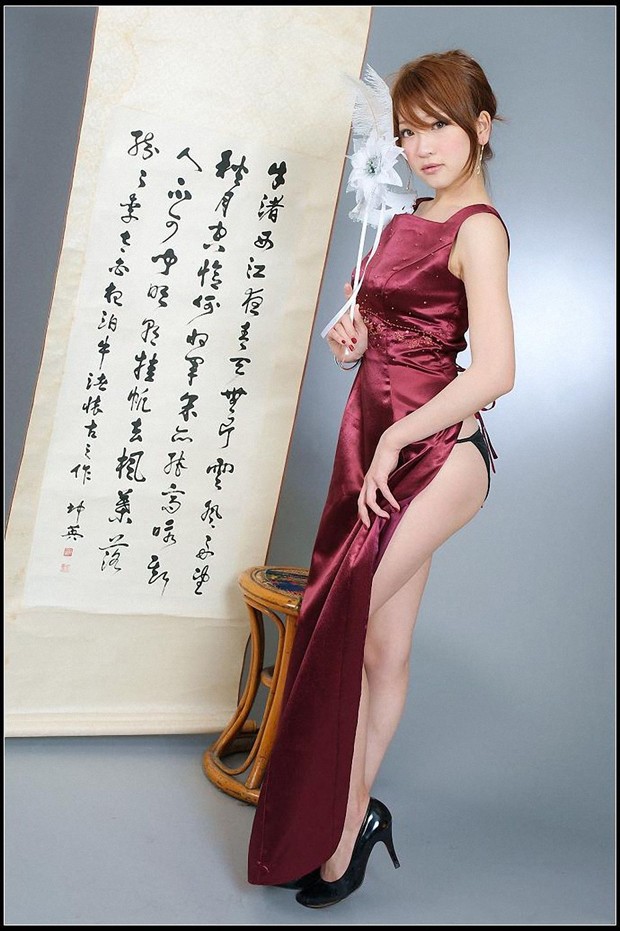 牛渚西江夜青天無片雲登舟望
秋月空憶謝將軍余亦能高詠斯
人不可聞明朝挂帆去楓葉落
紛紛李太白夜泊牛渚懷古之作
坤英